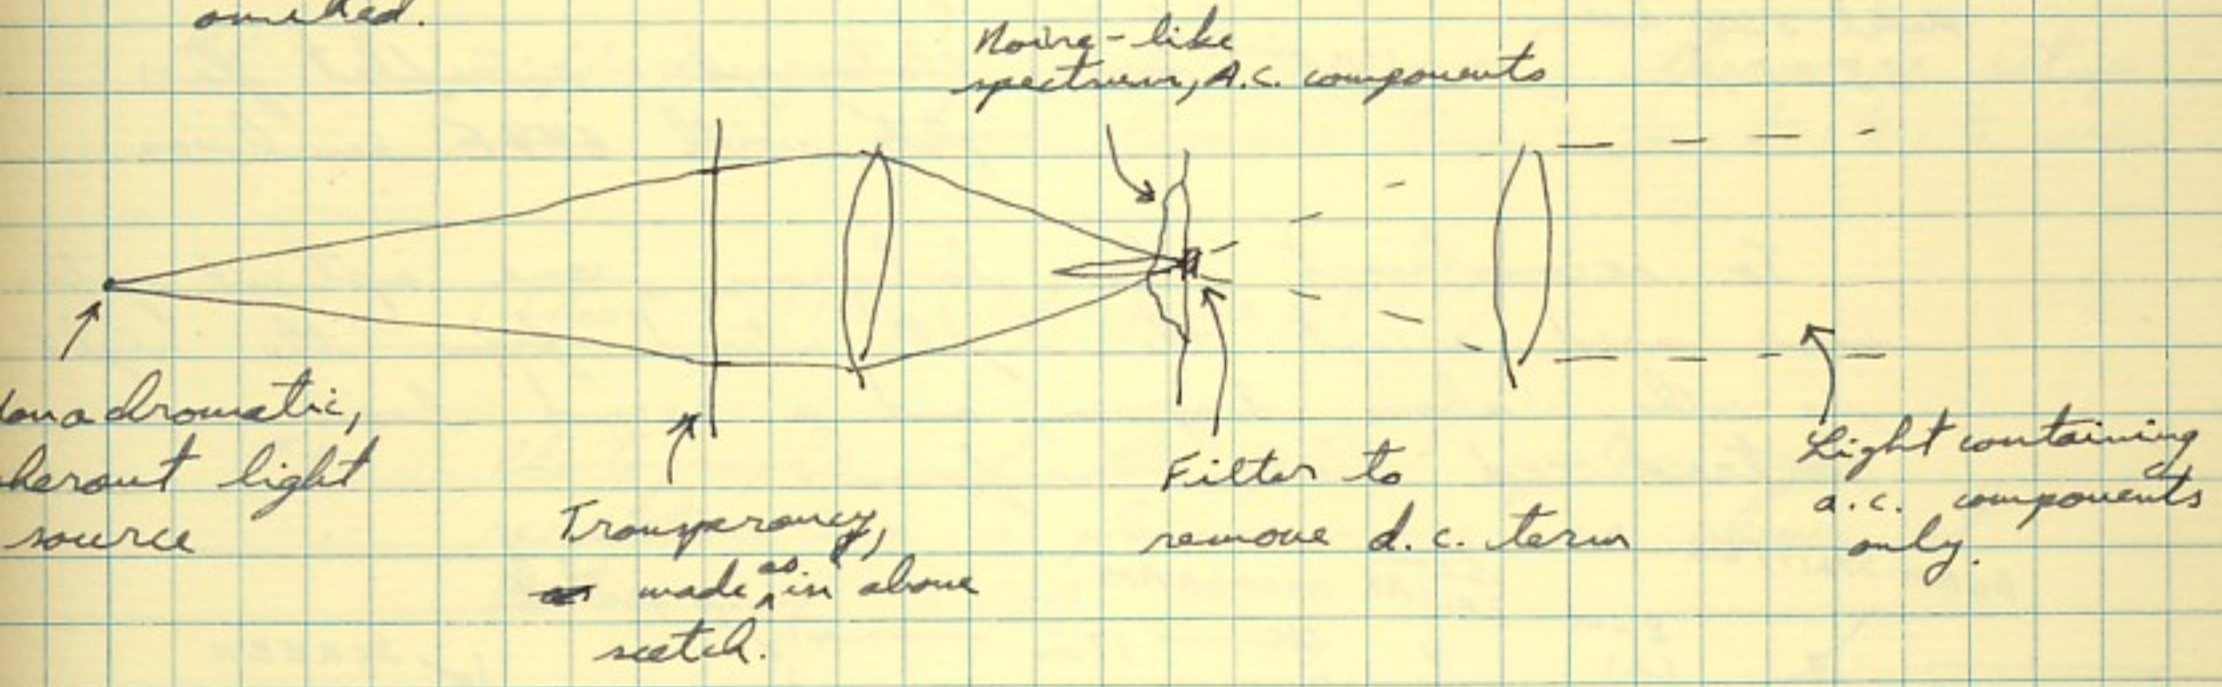 Noise-like
spectrum, A.C. components
onochromatic,
herent light
source
Transparency,
made as in above
scetch.
Filter to
remove d.c. term
Light containing
a.c. components
only.